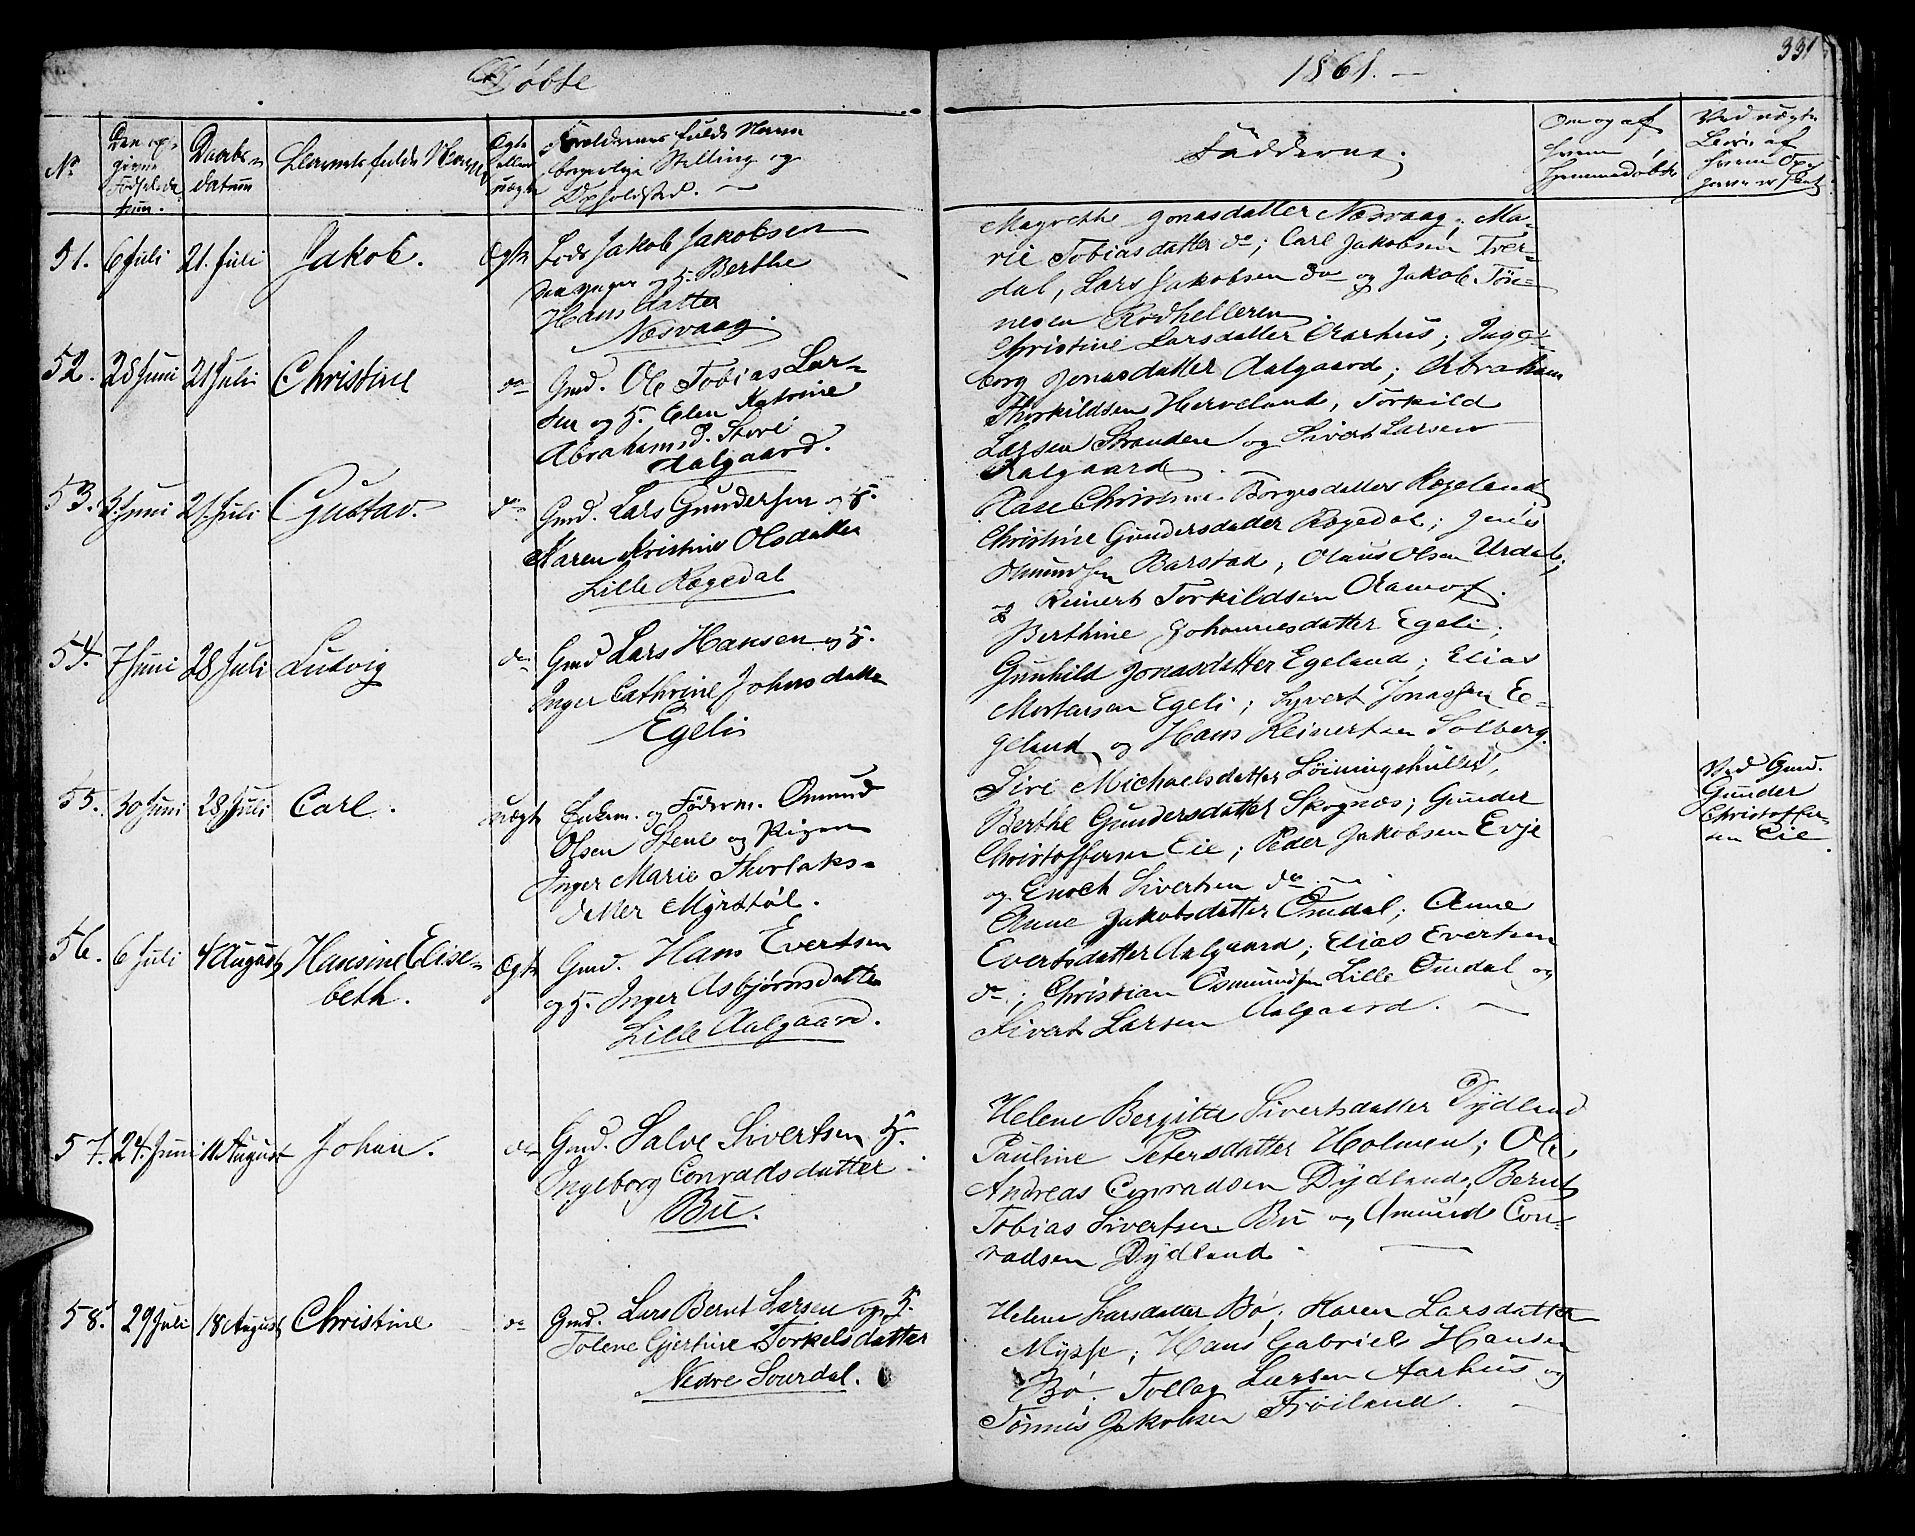 Døbte
1861. —
331
No
Den op-
givne
Fødselsda
tum.
Daabs-
datum
Barnets fulde Navn
Ægte
eller
uægte
Forældrenes fulde Navn
borgerlige Stilling og
Opholdsted. —
Fadderne.
Om og af
hvem
hjemmedøbt
Ved uægte
Børn af
hvem Op-
51. 6 Juli 21. Juli Jakob. Ægte
Lods Jakob Jakobsen
den yngre og H. Berthe
Hansdatter
Næsvaag.
Magrethe Jonasdatter Næsvaag; Ma-
rie Tobiasdatter do; Carl Jakobsen Tver-
dal, Lars Jakobsen do og Jakob Tøn-
nesen Rødhelleren.
52. 28 Juni 21 Juli Christine do
Gmd. Ole Tobias Lar-
sen og H. Elen Katrine
Abrahamsd. Store
Aalgaard.
Christine Larsdatter Aarhus; Inge-
borg Jonasdatter Aalgaard; Abraham
Thorkildsen Herveland, Torkild
Larsen Stranden og Sivert Larsen
Aalgaard.
53. 3. Juni 21. Juli Gustav. do
Gmd. Lars Gundersen og H.
Karen Kristine Olsdatter
Lille Rægedal
Christine Borgesdatter Rægeland
Christine Gundersdatter Rægedal; Jens
Omundsen Barstad; Olaus Olsen Urdal;
og Reinert Torkildsen
54. 7 Juni 28 Juli Ludvig do
Gmd Lars Hansen og H.
Inger Cathrine Johnsdatter
Egeli
Berthine Johannesdatter Egeli;
Gunhild Jonasdatter Egeland; Elias
Mortensen Egeli; Syvert Jonassen E-
geland og Hans Reinertsen Solberg.
55. 30 Juni 28 Juli Carl. uægte
Enkem. og Føderm. Omund
Olsen Stene og Pigen
Inger Marie Thorlaks-
datter Myrstøl.
Siri Michaelsdatter
Berthe Gundersdatter Skognæs; Gunder
Christoffersen Eie; Peder Jakobsen Evje
og Enoch Sivertsen do. —
Ved Gmd.
Gunder
Christoffer-
sen Eie.
56. 6 Juli 4 August Hansine Elise-
beth. Ægte
Gmd. Hans Evertsen
og H. Inger Asbjørnsdatter
Lille Aalgaard.
Anne Jakobsdatter Omdal; Anne
Evertsdatter Aalgaard; Elias Evertsen
do; Christian Osmundsen Lille Omdal og
Sivert Larsen Aalgaard. —
57. 24. Juni 11 August Johan. do
Gmd. Salve Sivertsen H.
Ingeborg Conradsdatter
Bu.
Helene Bergitte Sivertsdatter Dydland
Pauline Petersdatter Holmen; Ole
Andreas Conradsen Dydland, Bernt
Tobias Sivertsen Bu og Amund Con-
radsen Dydland. —
58. 29 Juli 18 August Christine do
Gmd. Lars Bernt Larsen og H.
Tolene Gjertine Torkelsdatter
Nedre Sourdal.
Helene Larsdatter Bø, Karen Larsdatter
Mysse; Hans Gabriel Hansen
Bø. Tollag Larsen Aarhus og
Tønnes Jakobsen Frøiland. —